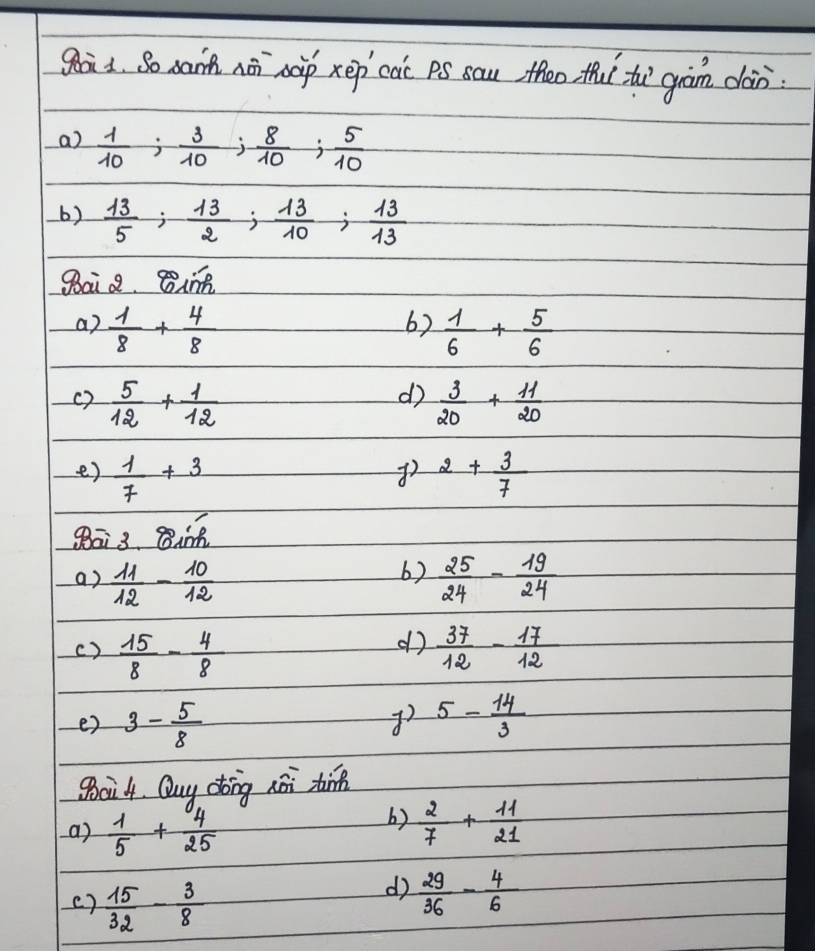 Bài 1. So sánh rồi sắp xếp các PS sau theo thứ tự giảm dần:
a) 1/10 ; 3/10 ; 8/10 ; 5/10
b) 13/5 ; 13/2 ; 13/10 ; 13/13
Bài 2. Tính
a) 1/8 + 4/8 b) 1/6 + 5/6
c) 5/12 + 1/12 d) 3/20 + 11/20
e) 1/7 + 3 g) 2 + 3/7
Bài 3. Tính
a) 11/12 - 10/12 b) 25/24 - 19/24
c) 15/8 - 4/8 d) 37/12 - 17/12
e) 3 - 5/8 g) 5 - 14/3
Bài 4. Quy đồng rồi tính
a) 1/5 + 4/25 b) 2/7 + 11/21
c) 15/32 - 3/8 d) 29/36 - 4/6